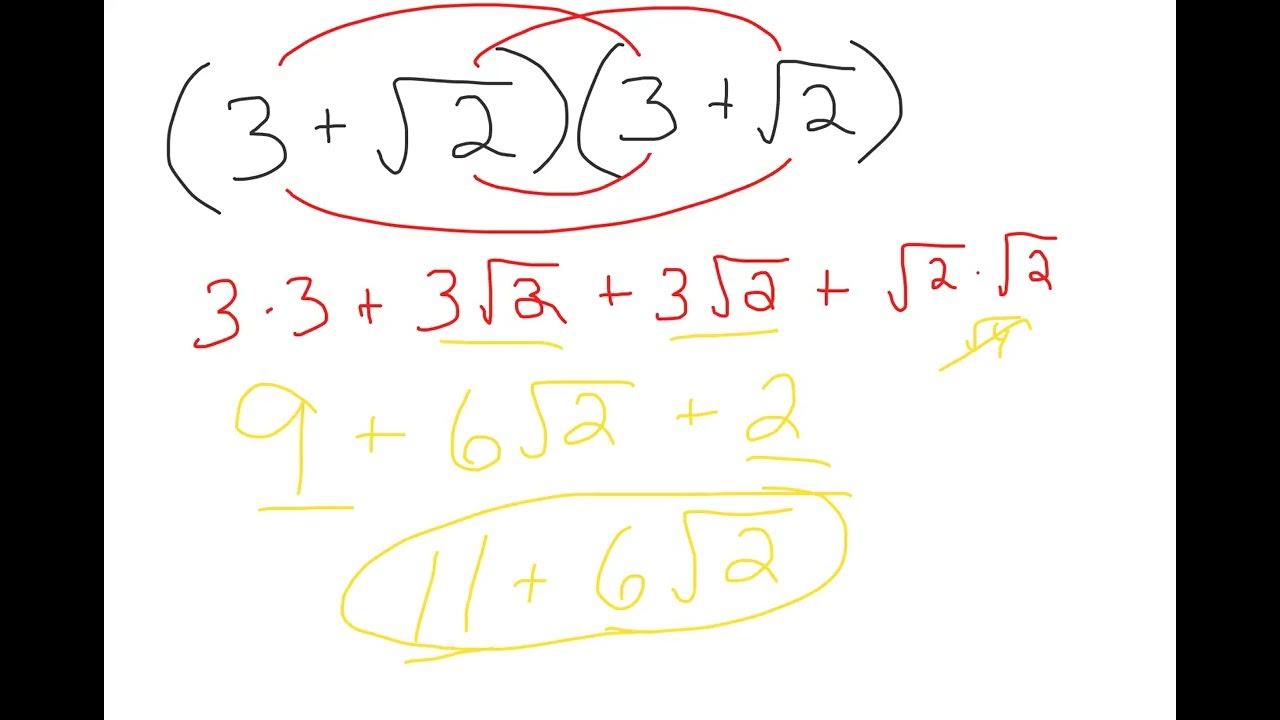 (3 + √2)(3 + √2)
3 · 3 + 3√2 + 3√2 + √2 · √2
√4
9 + 6√2 + 2
11 + 6√2